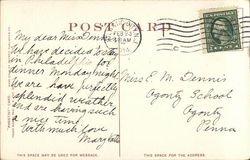 POST CARD
FEB 23
My dear Miss Dennis
We have decided to stay
in Philadelphia for
dinner Monday night
We are have perfectly
splendid weather
and are having such
a nice time.
With much love
Mary
Miss E. M. Dennis
Agontz School
Agontz
Penna
THIS SPACE MAY BE USED FOR MESSAGE.
THIS SPACE FOR THE ADDRESS.